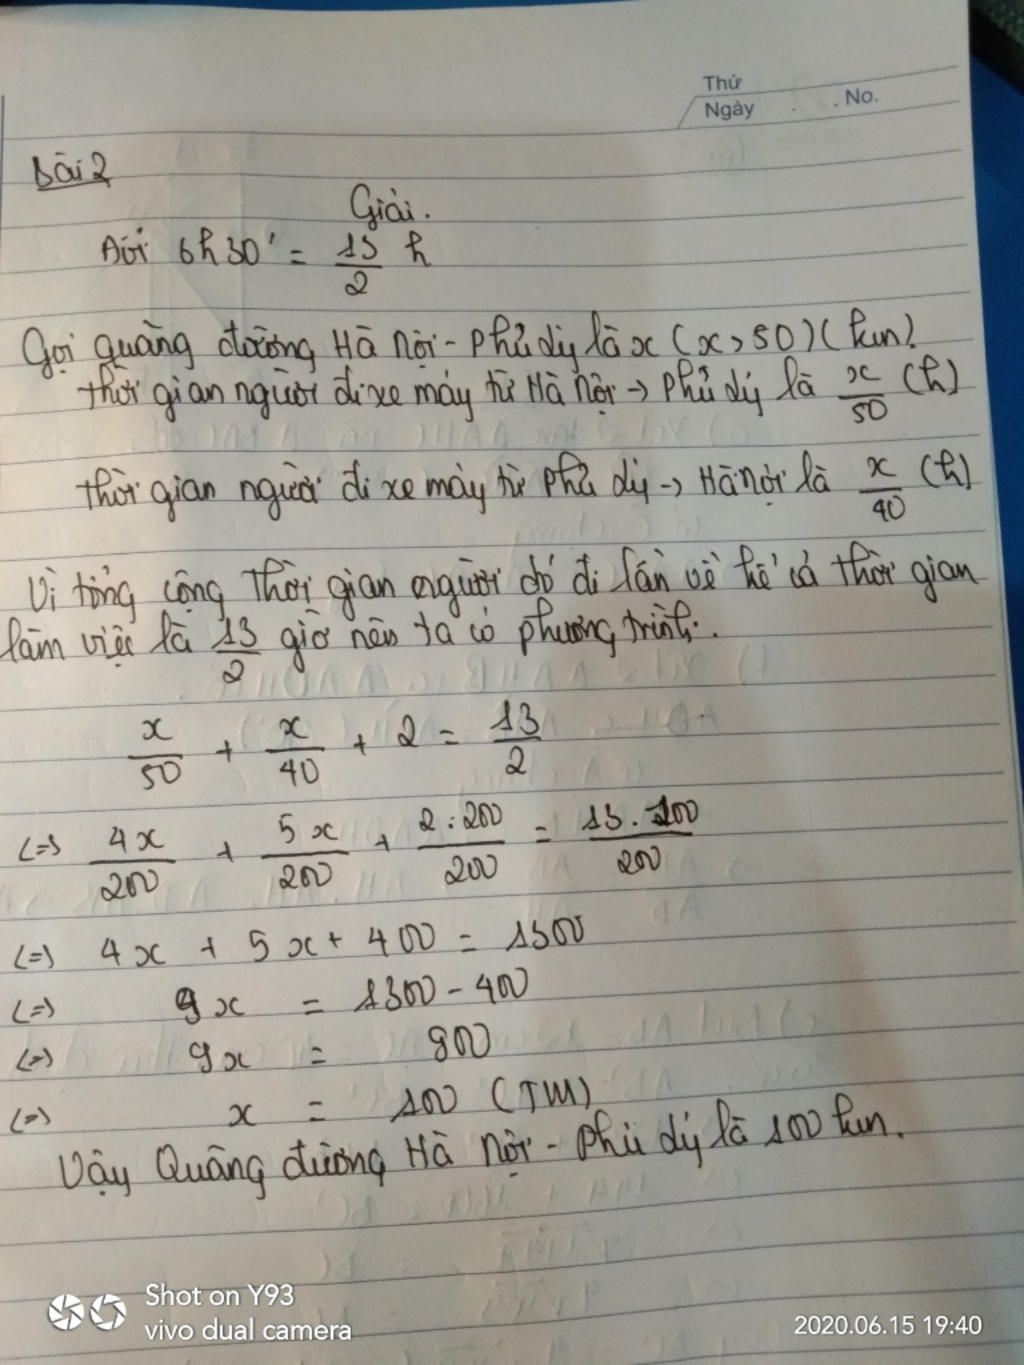 Thứ
Ngày . . No.
Bài 2
Giải.
Đổi 6h30' = 13/2 h
Gọi quãng đường Hà Nội - Phủ dý là x (x > 50) (km)
thời gian người đi xe máy từ Hà Nội -> Phủ dý là x/50 (h)
thời gian người đi xe máy từ Phủ dý -> Hà nội là x/40 (h)
Vì tổng cộng thời gian người đó đi lẫn về kể cả thời gian
làm việc là 13/2 giờ nên ta có phương trình.
x/50 + x/40 + 2 = 13/2
<=> 4x/200 + 5x/200 + 2.200/200 = 13.100/200
<=> 4x + 5x + 400 = 1300
<=> 9x = 1300 - 400
<=> 9x = 900
<=> x = 100 (TM)
Vậy Quãng đường Hà Nội - Phủ dý là 100 km.
Shot on Y93
vivo dual camera
2020.06.15 19:40